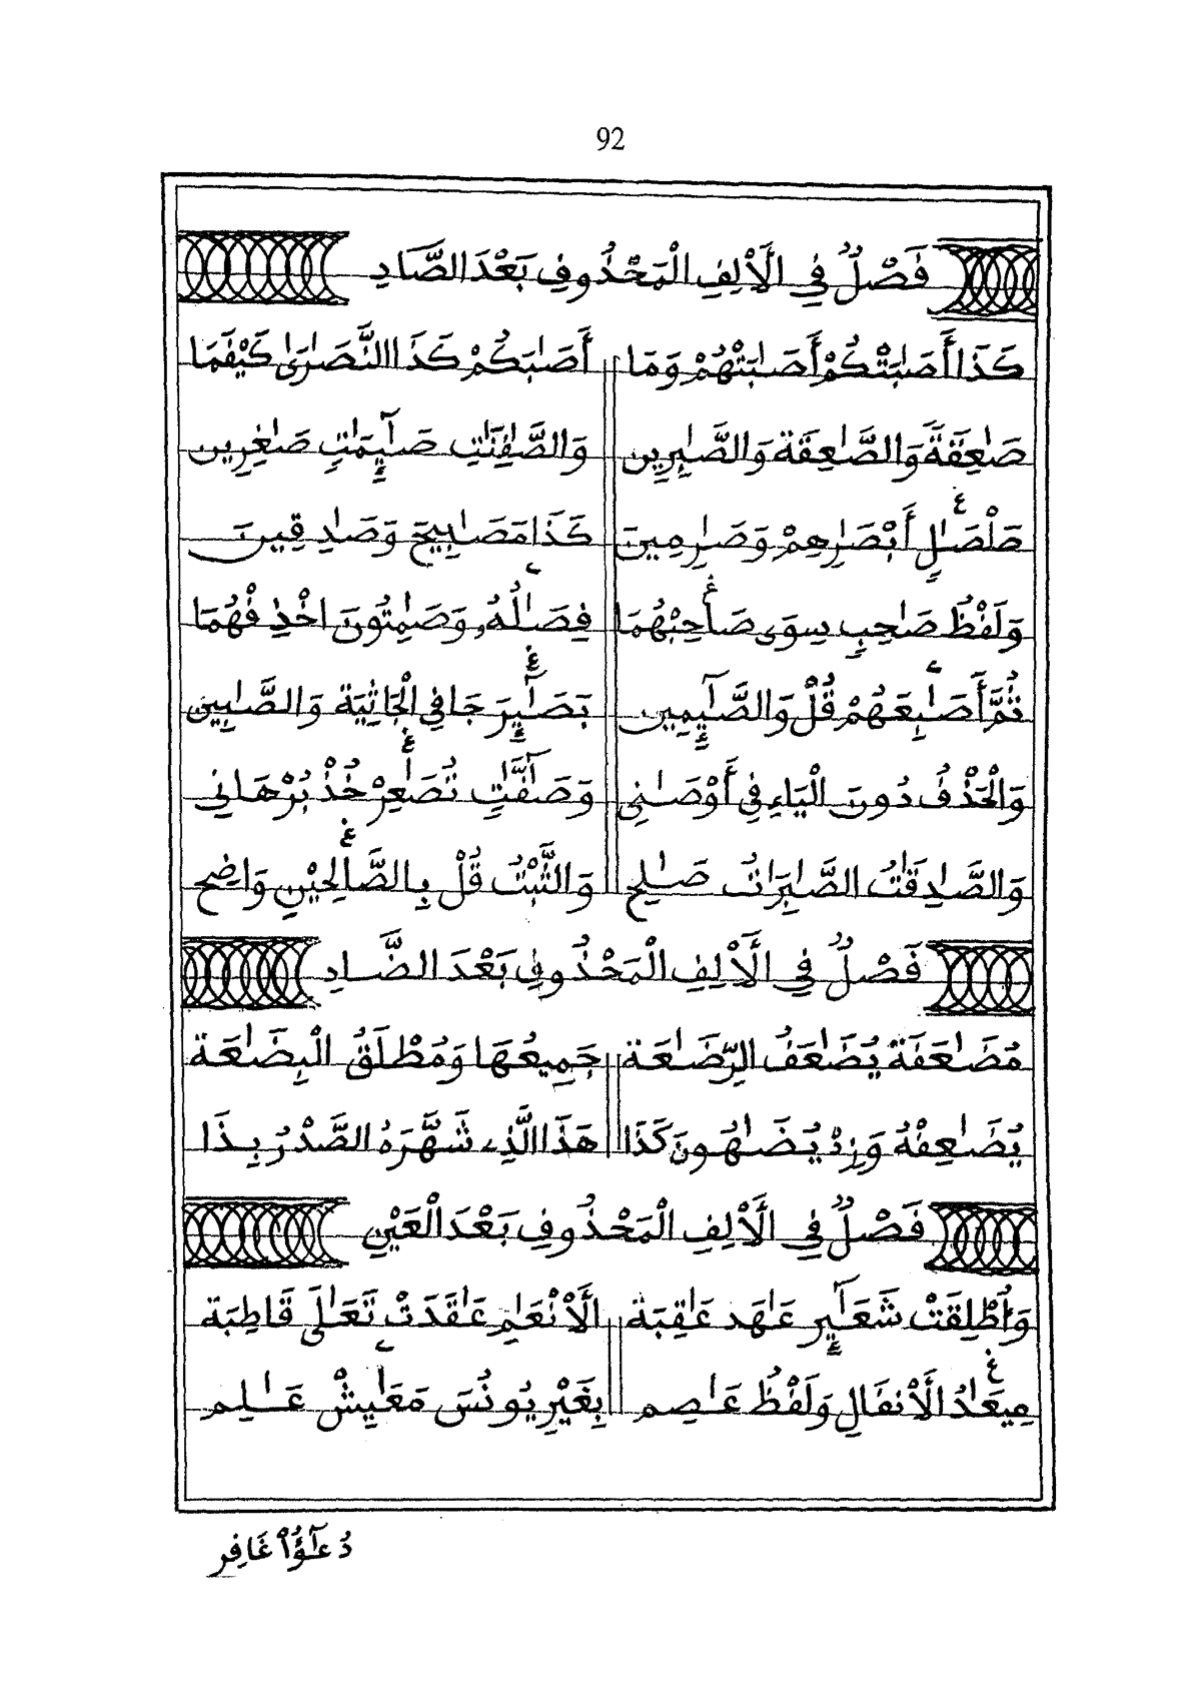 92
فَصْلٌ فِي الْأَلِفِ الْمَحْذُوفِ بَعْدَ الصَّادِ
كَذَا أَصَٰبَتْكُمْ أَصَٰبَتْهُمْ وَمَا أَصَٰبَكُمْ كَذَا النَّصَٰرَىٰ كَيْفَمَا
صَٰعِقَةً وَالصَّٰعِقَةَ وَالصَّٰبِرِينَ وَالصَّٰفِنَٰتِ صَٰٓئِمَٰتٍ صَٰغِرِينَ
صَلْصَٰلٍ أَبْصَٰرِهِمْ وَصَٰرِمِينَ كَذَا مَصَٰبِيحَ وَصَٰدِقِينَ
وَلَفْظُ صَٰحِبٍ سِوَى صَاحِبْهُمَا فِصَٰلُهُ وَصَٰمِتُونَ اخْذِ فْهُمَا
ثُمَّ أَصَٰبِعَهُمْ قُلْ وَالصَّٰٓئِمِينَ بَصَٰٓئِرَ جَا فِي الْجَاثِيَة وَالصَّٰبِينَ
وَالْحَذْفُ دُونَ الْيَاءِ فِي أَوْصَٰنِي وَصَٰٓفَّٰتٍ تُصَٰعِرْ خُذْ بُرْهَانِي
وَالصَّٰدِقَٰتُ الصَّٰبِرَاتُ صَٰلِحِ وَالثَّبْتُ قُلْ بِالصَّالِحِيْنِ وَاضِحِ
فَصْلٌ فِي الْأَلِفِ الْمَحْذُوفِ بَعْدَ الضَّادِ
مُضَٰعَفَةً يُضَٰعَفُ الرَّضَٰعَة جَمِيعُهَا وَمُطْلَقُ الْبِضَٰعَة
يُضَٰعِفْهُ وَزِدْ يُضَٰهُونَ كَذَا هَذَا الَّذِي شَهَّرَهُ الصَّدْرُ بِذَا
فَصْلٌ فِي الْأَلِفِ الْمَحْذُوفِ بَعْدَ الْعَيْنِ
وَأُطْلِقَتْ شَعَٰٓئِرِ عَٰهَدَ عَٰقِبَة الْأَنْعَٰمِ عَٰقَدَتْ تَعَٰلَى قَاطِبَة
مِيعَٰدُ الْأَنفَالِ وَلَفْظُ عَٰصِمِ بِغَيْرِ يُونُسَ مَعَٰيِشْ عَٰلِمِ
دُعَٰٓؤُاْ غَافِرِ